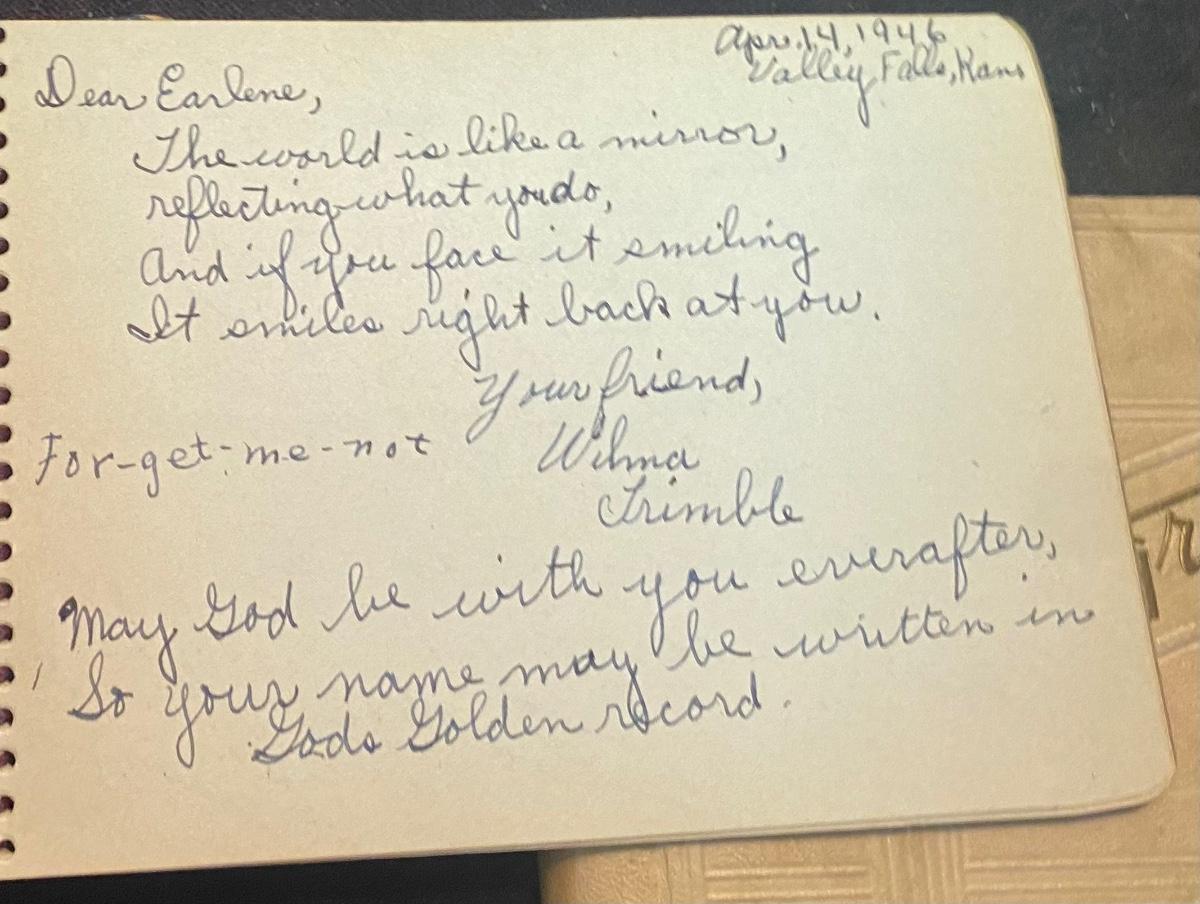 Apr. 14, 1946
Valley Falls, Kans
Dear Earlene,
The world is like a mirror,
reflecting what you do,
And if you face it smiling
It smiles right back at you.
Your friend,
For-get-me-not
Wilma
Trimble
May God be with you everafter,
So your name may be written in
Gods Golden record.